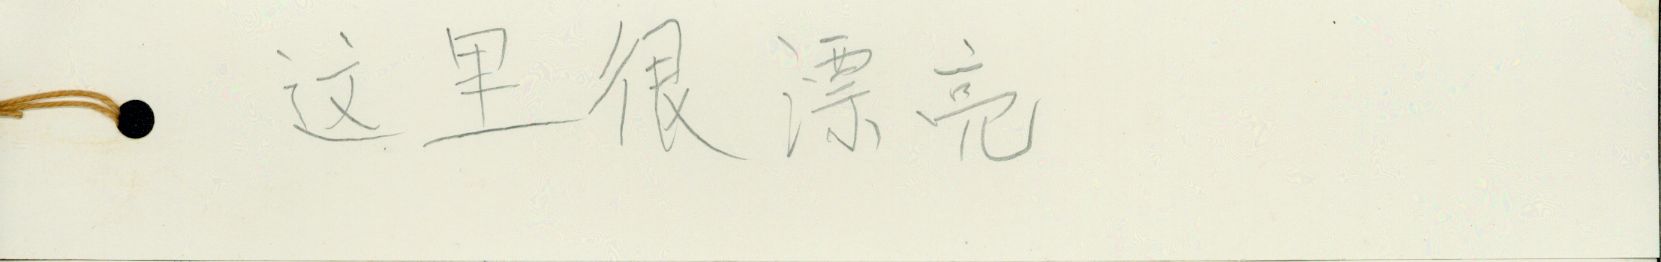 这里很漂亮